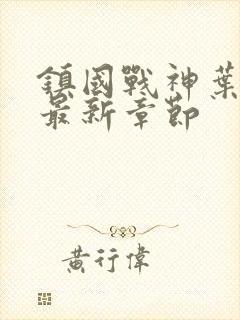 鎮國戰神葉
最新章節
黃行偉